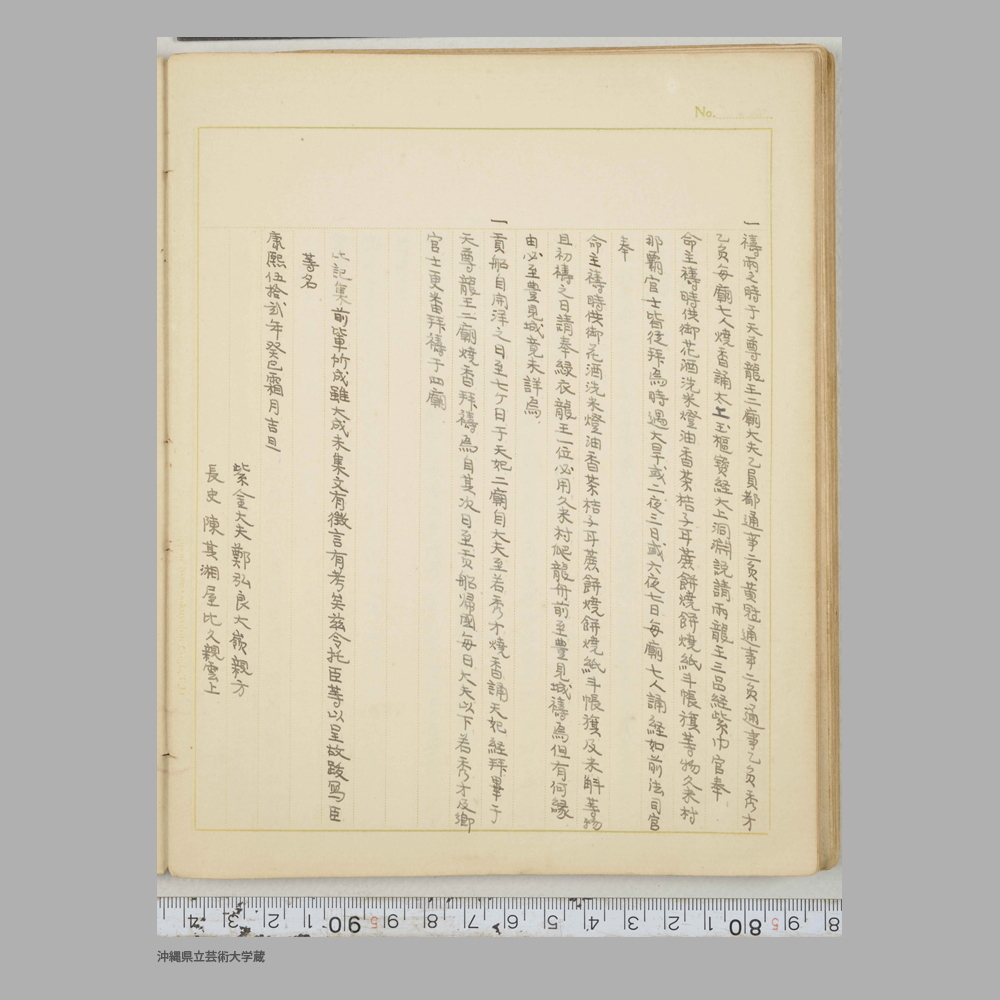 No.
一禱雨之時于天尊龍王二廟大夫乙員都通事二員黄冠通事二員通事乙員秀才
乙員每廟七人燒香誦太上玉樞寳経太上洞淵説請雨龍王三品経紫巾官奉
命主禱時供御花酒洗米燈油香茶桔子耳蔗餅燒餅燒紙斗帳簱等物久米村
那覇官士皆従拜焉時遇大旱或二夜三日或六夜七日每廟七人誦経如前法司官
奉
命主禱時供御花酒洗米燈油香茶桔子耳蔗餅燒餅燒紙斗帳簱及米斛等物
且初禱之日請奉緑衣龍王一位必用久米村爬龍舟前至豊見城禱焉但有何縁
由必至豊見城竟未詳焉
一貢船自開洋之日至七ケ日于天妃二廟自大夫至若秀才燒香誦天妃経拜畢于
天尊龍王二廟燒香拜禱焉自其次日至貢船帰國每日大夫以下若秀才及鄉
官士更番拜禱于四廟
此記集前輩所成雖大成未集文有徴言有考矣茲令托臣等以呈故跋寫臣
等名
康熙伍拾弐年癸巳霜月吉旦
紫金大夫鄭弘良大嶺親方
長史陳其湘屋比久親雲上
4 3 2 1 90 9 8 7 6 5 4 3 2 1 80 9 8
沖縄県立芸術大学蔵